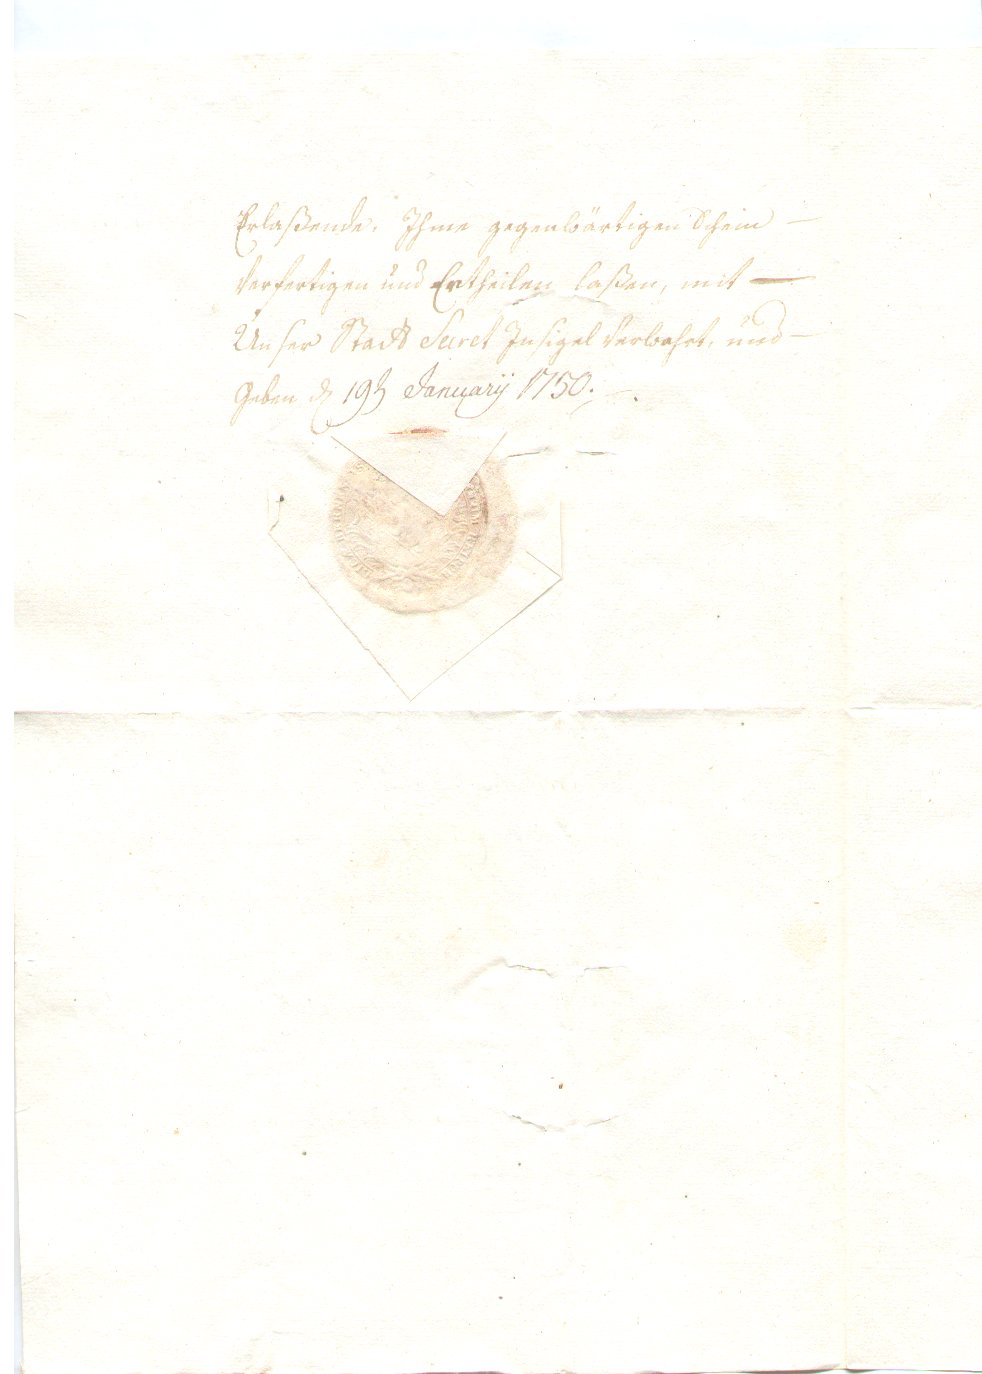 Erlaßende, Ihme gegenwärtigen Schein —
Verfertigen und Ertheilen laßen, mit —
Unser Stadt Secret Insigel Verwahrt, und —
Geben d 19t January 1750.